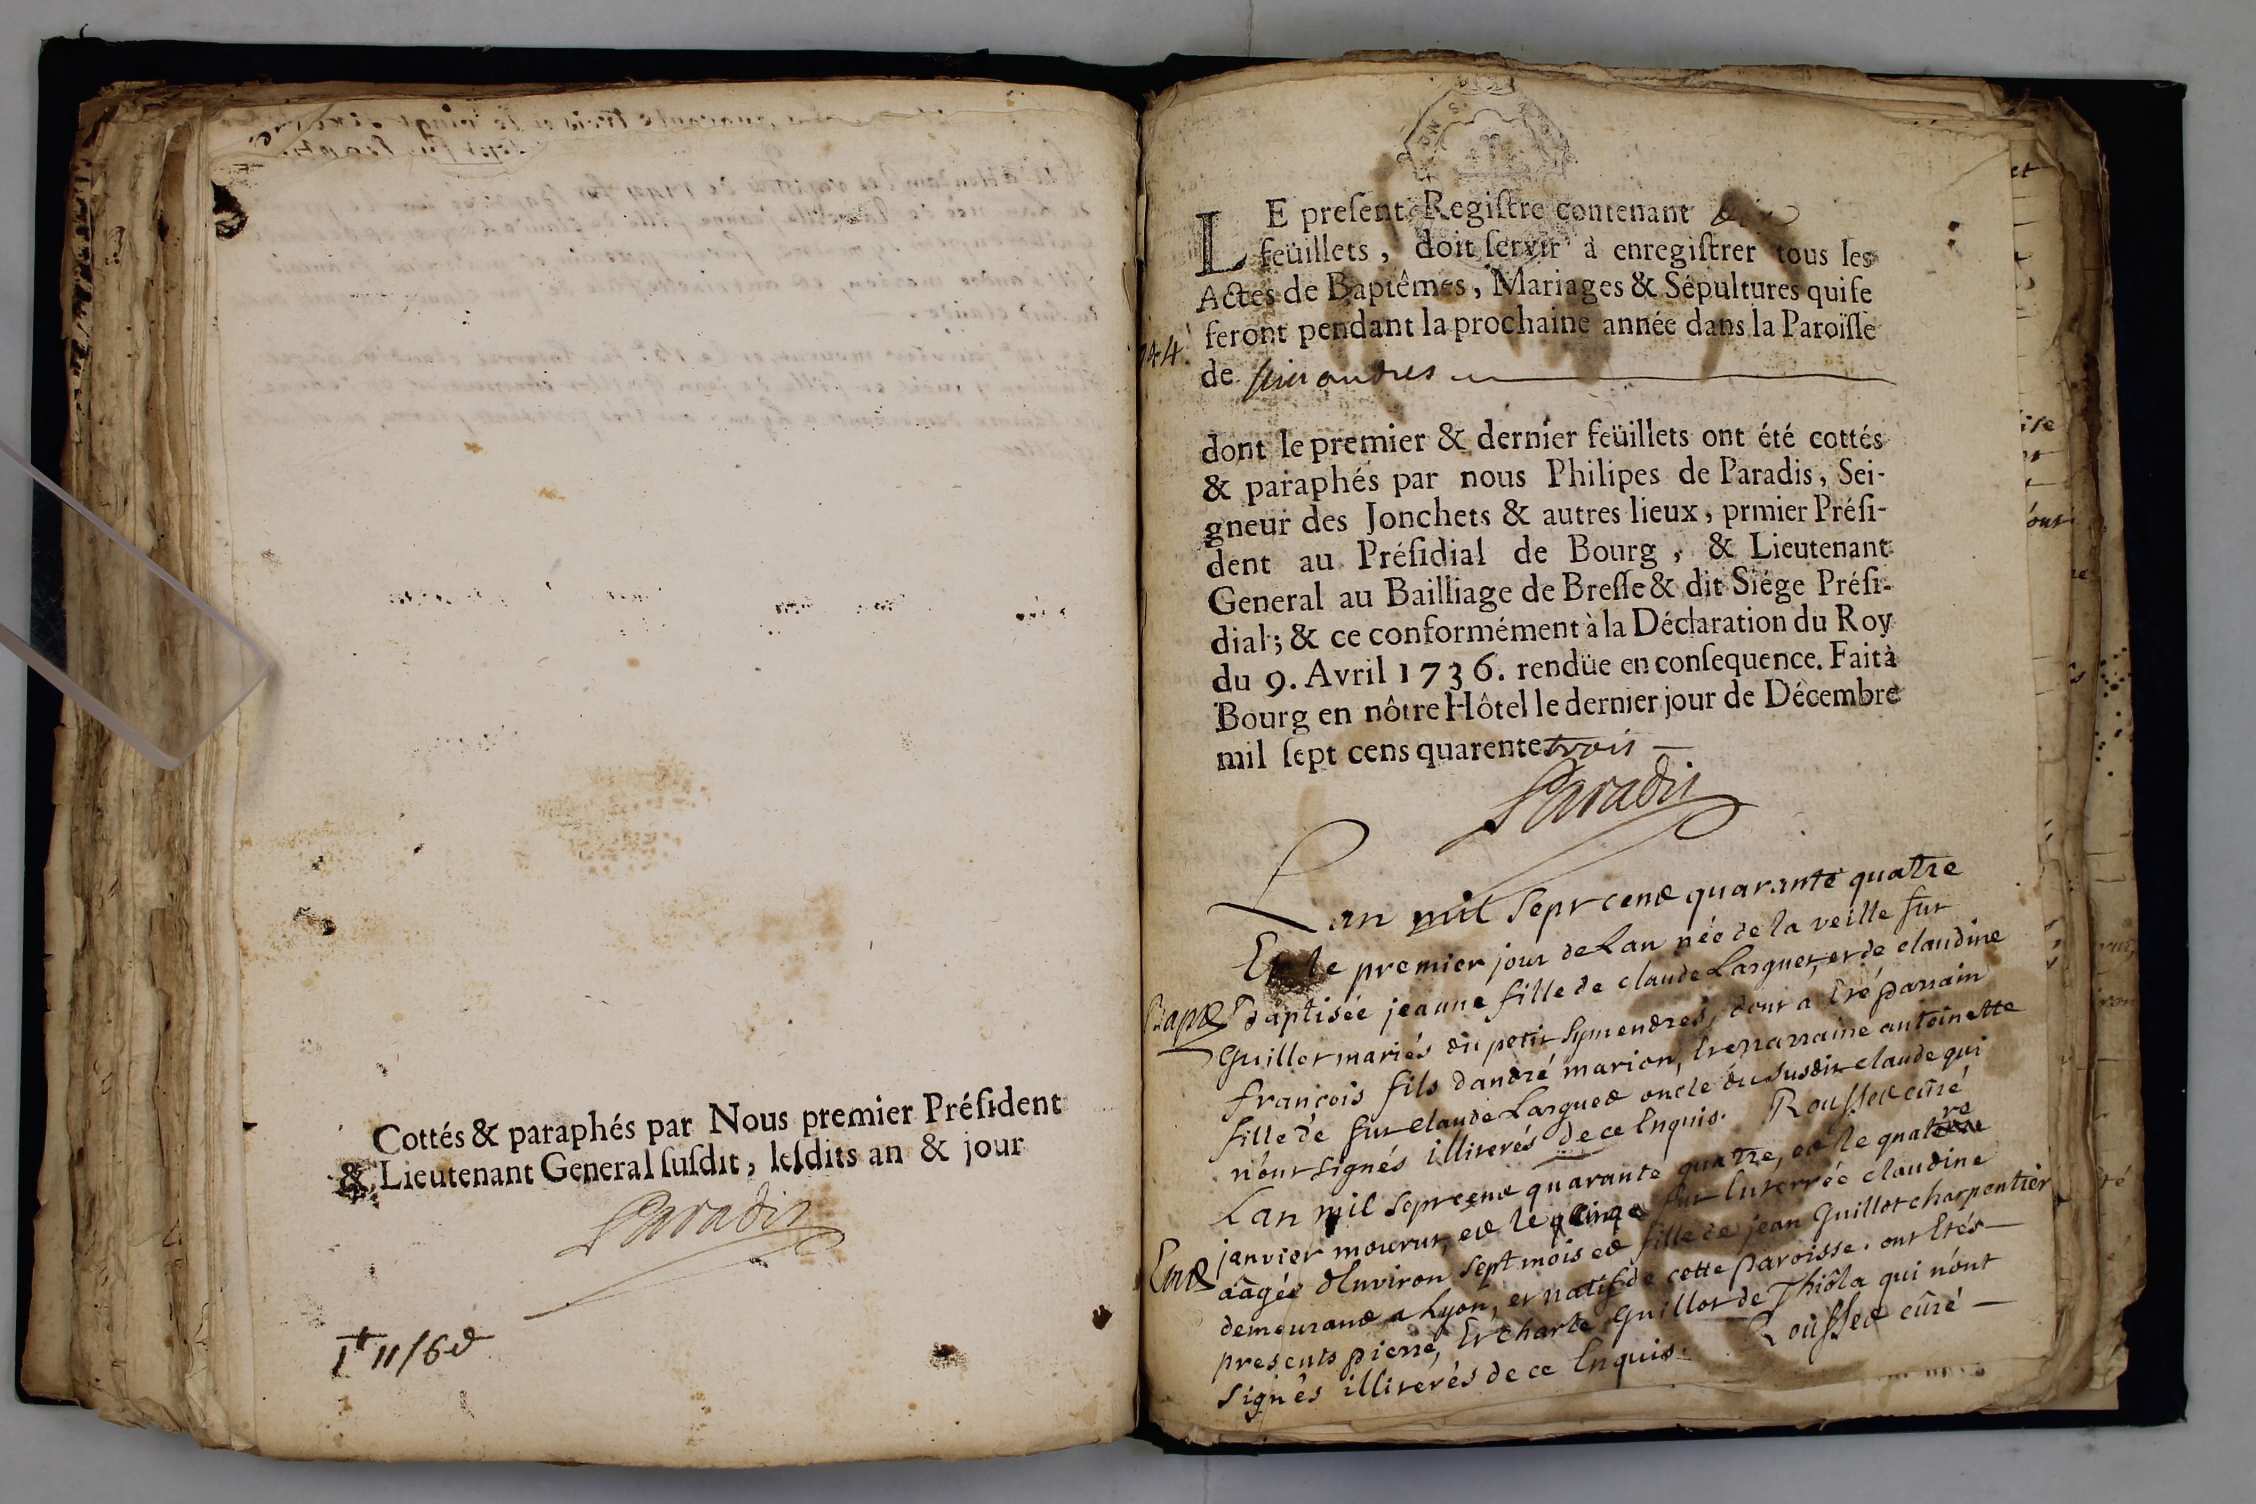 Cottés & paraphés par Nous premier Préſident
& Lieutenant General ſuſdit, leſdits an & jour
Paradis
LE preſent Regiſtre contenant dix
feüillets, doit ſervir à enregiſtrer tous les
Actes de Baptêmes, Mariages & Sépultures qui ſe
feront pendant la prochaine année dans la Paroiſſe
de
dont le premier & dernier feüillets ont été cottés
& paraphés par nous Philipes de Paradis, Sei-
gneur des Jonchets & autres lieux, prmier Préſi-
dent au Préſidial de Bourg, & Lieutenant
General au Bailliage de Breſſe & dit Siége Préſi-
dial; & ce conformément à la Déclaration du Roy
du 9. Avril 1736. rendüe en conſequence. Fait à
Bourg en nôtre Hôtel le dernier jour de Décembre
mil ſept cens quarente trois
Paradis
Lan mil sept cent quarante quatre
Et le premier jour de Lan née de la veille fut
Bapt Baptisée jeanne fille de claude Larguet, et de claudine
Guillot mariés du petit Symendres, dont a Eté parrain
françois fils dandré marion, Et marraine antoinette
fille de fut claude Larguet oncle du susdit claude qui
nont signés illiterés de ce Enquis. Rousset cûré
Lan mil sept cent quarante quatre, et le quatre
janvier mourut, et le cinq fut Enterrée claudine
Ent aâgée dEnviron sept mois et fille de jean Guillot charpentier
demourant a Lyon, et natif de cette paroisse. ont Etés
presents pierre, Et charle Guillot de Thiôla qui nónt
signês illiterés de ce Enquis. Rousset cûré